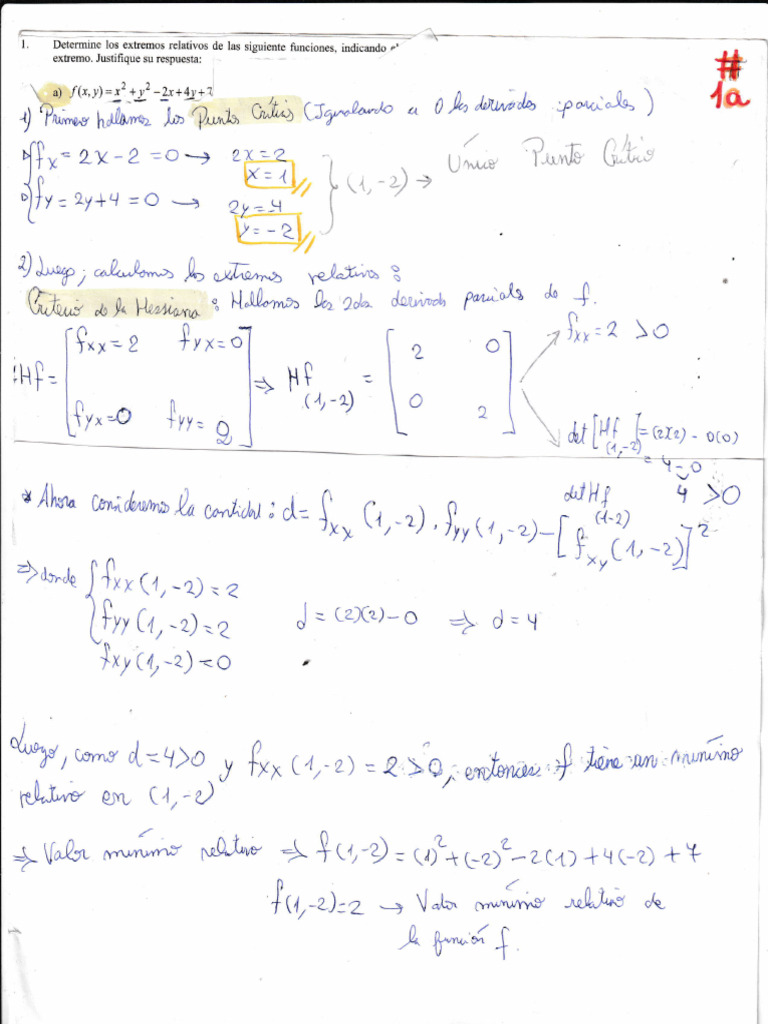 1. Determine los extremos relativos de las siguiente funciones, indicando el
extremo. Justifique su respuesta:
#
1a
a) f(x,y) = x² + y² − 2x + 4y + 7
1) Primero hallamos los Puntos Críticos (Igualando a 0 las derivadas parciales)
fx = 2x − 2 = 0 → 2x = 2
x = 1
fy = 2y + 4 = 0 → 2y = −4
y = −2
} (1, −2) → Único Punto Crítico
2) Luego; calculamos los extremos relativos:
Criterio de la Hessiana: Hallamos las 2das derivads parcials de f.
Hf = [ fxx = 2 fyx = 0
fyx = 0 fyy = 2 ]
⇒ Hf (1, −2) = [ 2 0
0 2 ]
fxx = 2 > 0
det [Hf (1, −2)] = (2)(2) − 0(0)
= 4 − 0
det Hf (1 −2) 4 > 0
* Ahora consideremos la cantidad: d = fxx (1, −2) . fyy (1, −2) − [fxy (1, −2)]²
⇒ donde { fxx (1, −2) = 2
fyy (1, −2) = 2
fxy (1, −2) = 0
d = (2)(2) − 0 ⇒ d = 4
Luego, como d = 4 > 0 y fxx (1, −2) = 2 > 0, entonces f tiene un mínimo
relativo en (1, −2)
⇒ Valor mínimo relativo ⇒ f(1, −2) = (1)² + (−2)² − 2(1) + 4(−2) + 7
f(1, −2) = 2 → Valor mínimo relativo de
la función f.